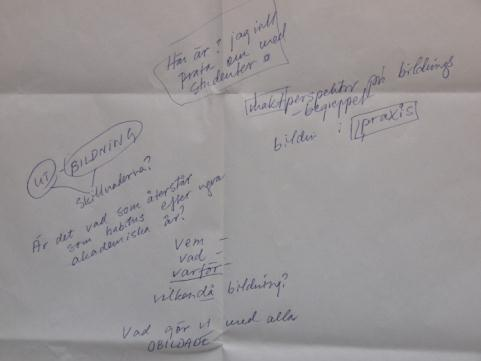 Här är? jag vill
prata om med
studenter.
maktperspektiv på bildnings
- begreppet
bildn i praxis
UT - BILDNING
skillnaderna?
Är det vad som återstår
som habitus efter ngra
akademiska år?
vem -
vad -
varför -
vilkendå bildning?
Vad gör vi med alla
OBILDADE